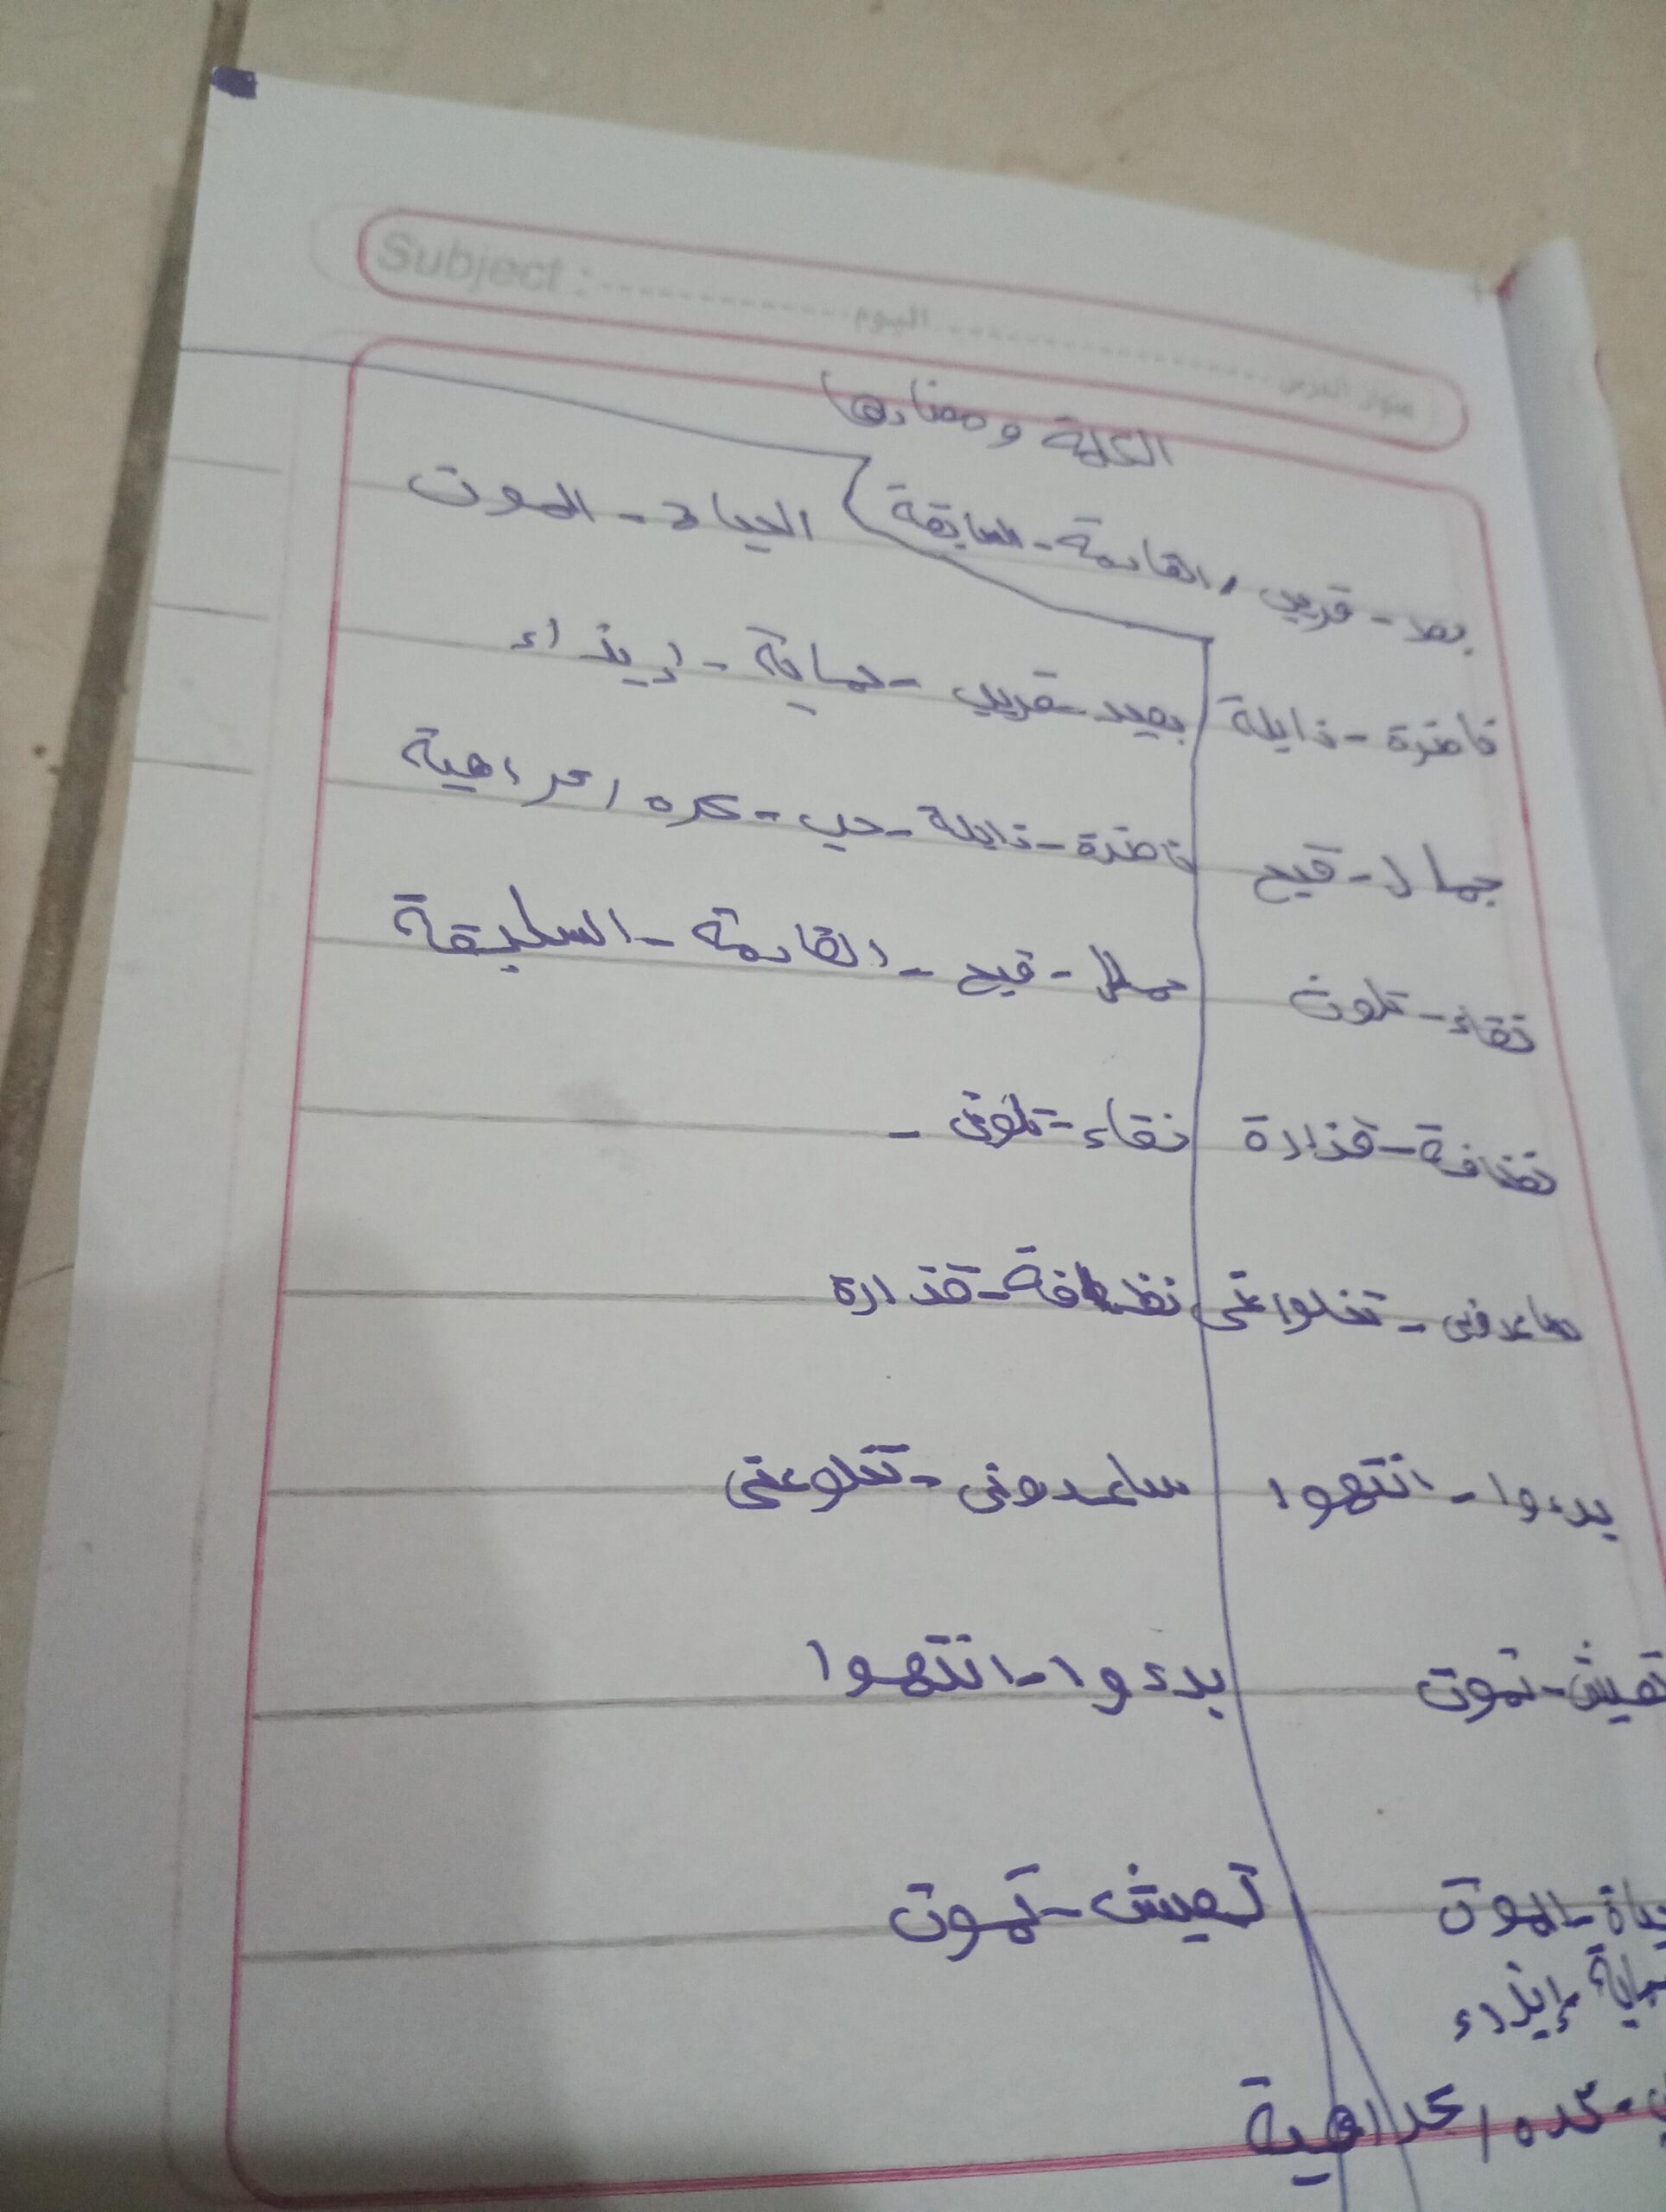 Subject :
اليوم
عنوان الدرس
الكلمة ومضادها
بعد - قريب , القادمة - السابقة
الحياة - الموت
ناضرة - ذابلة
بعيد - قريب - حماية - إيذاء
جمال - قبح
ناضرة - ذابلة - حب - كره / كراهية
نقاء - تلوث
جمال - قبح - القادمة - السابقة
نظافة - قذارة
نقاء - تلوث -
ساعدوني - تخلوا عني
نظافة - قذارة
بدءوا - انتهوا
ساعدوني - تخلو عني
تعيش - تموت
بدءوا - انتهوا
الموت
تعيش - تموت
إيذاء
كره / كراهية